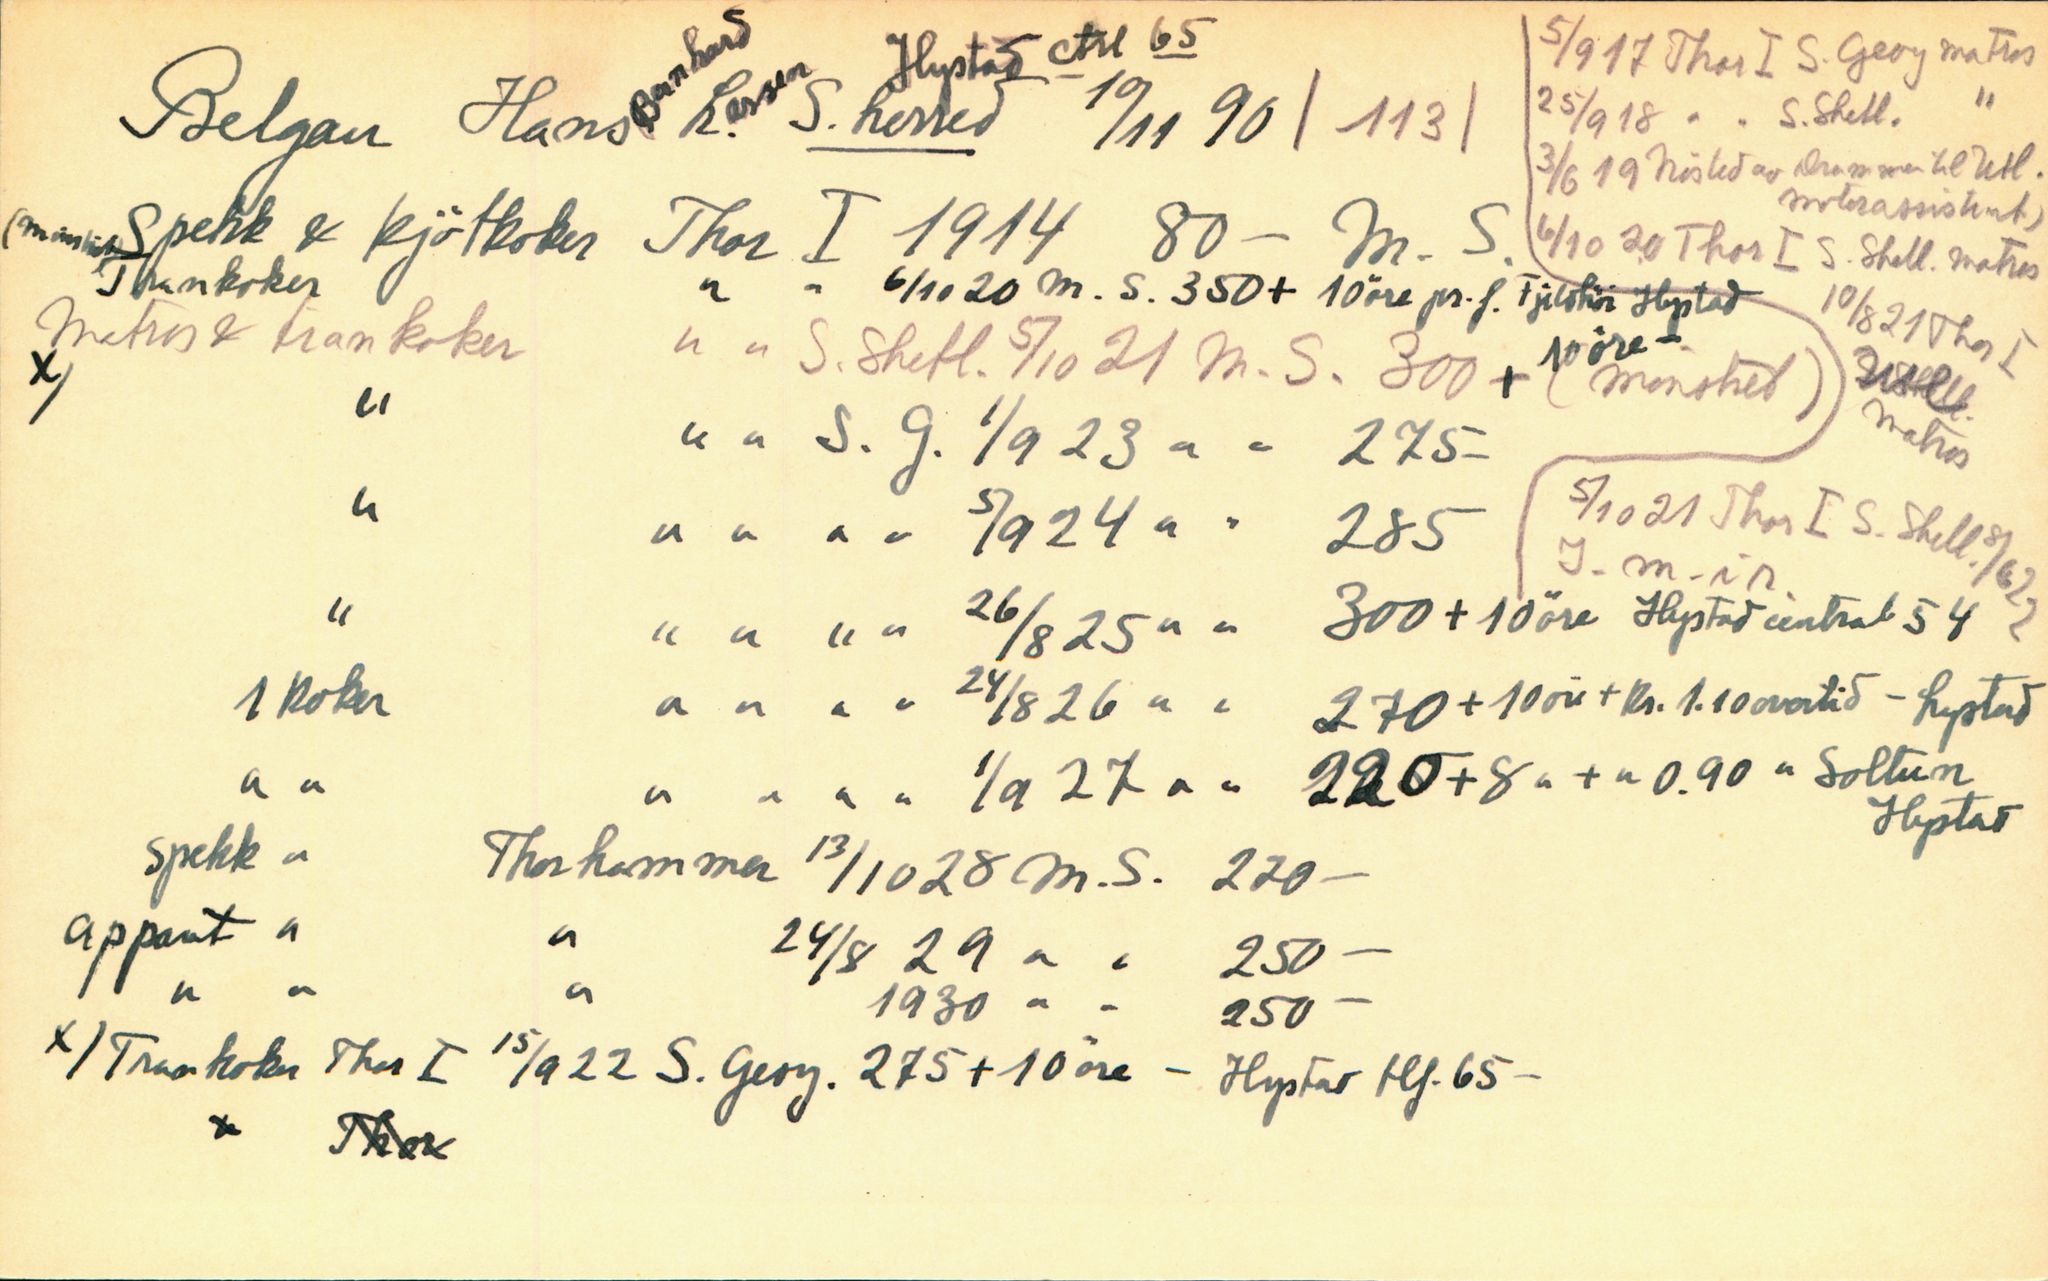 Bernhard Hystad ctrl 65
Belgau Hans L. assen S. herred 19/11 90 | 113 |
5/9 17 Thor I S. Georg matros
25/9 18 " " S. Shetl. "
3/6 19 av Drammen til Utl.
motorassistent)
6/10 20 Thor I S. Shetl. matros
10/8 21 Thor I
matros
5/10 21 Thor I S. Shetl. 8/6 22
Spekk & kjötkoker Thor I 1914 80 – M. S.
Trankoker " " 6/10 20 M. S. 350 + 10 öre pr. f. Hystad
Matros & trankoker " " S. Shetl. 5/10 21 M. S. 300 + 10 öre – (mönstret)
x/ " " " S. G. 1/9 23 " " 275 –
" " " " " 5/9 24 " " 285
" " " " " 26/8 25 " " 300 + 10 öre Hystad central 54
1 Koker " " " " 24/8 26 " " 270 + 10 öre + Kr. 1.10 overtid – Hystad
" " " " " " 1/9 27 " " 220 + 8 " + " 0.90 " Soltun
Hystad
Spekk " Thorhammer 13/10 28 M. S. 220 –
apparat " " 24/8 29 " " 250 –
" " " 1930 " " 250 –
x/ Trankoker Thor I 15/9 22 S. Georg. 275 + 10 öre – Hystad tlf. 65 –
x Thor